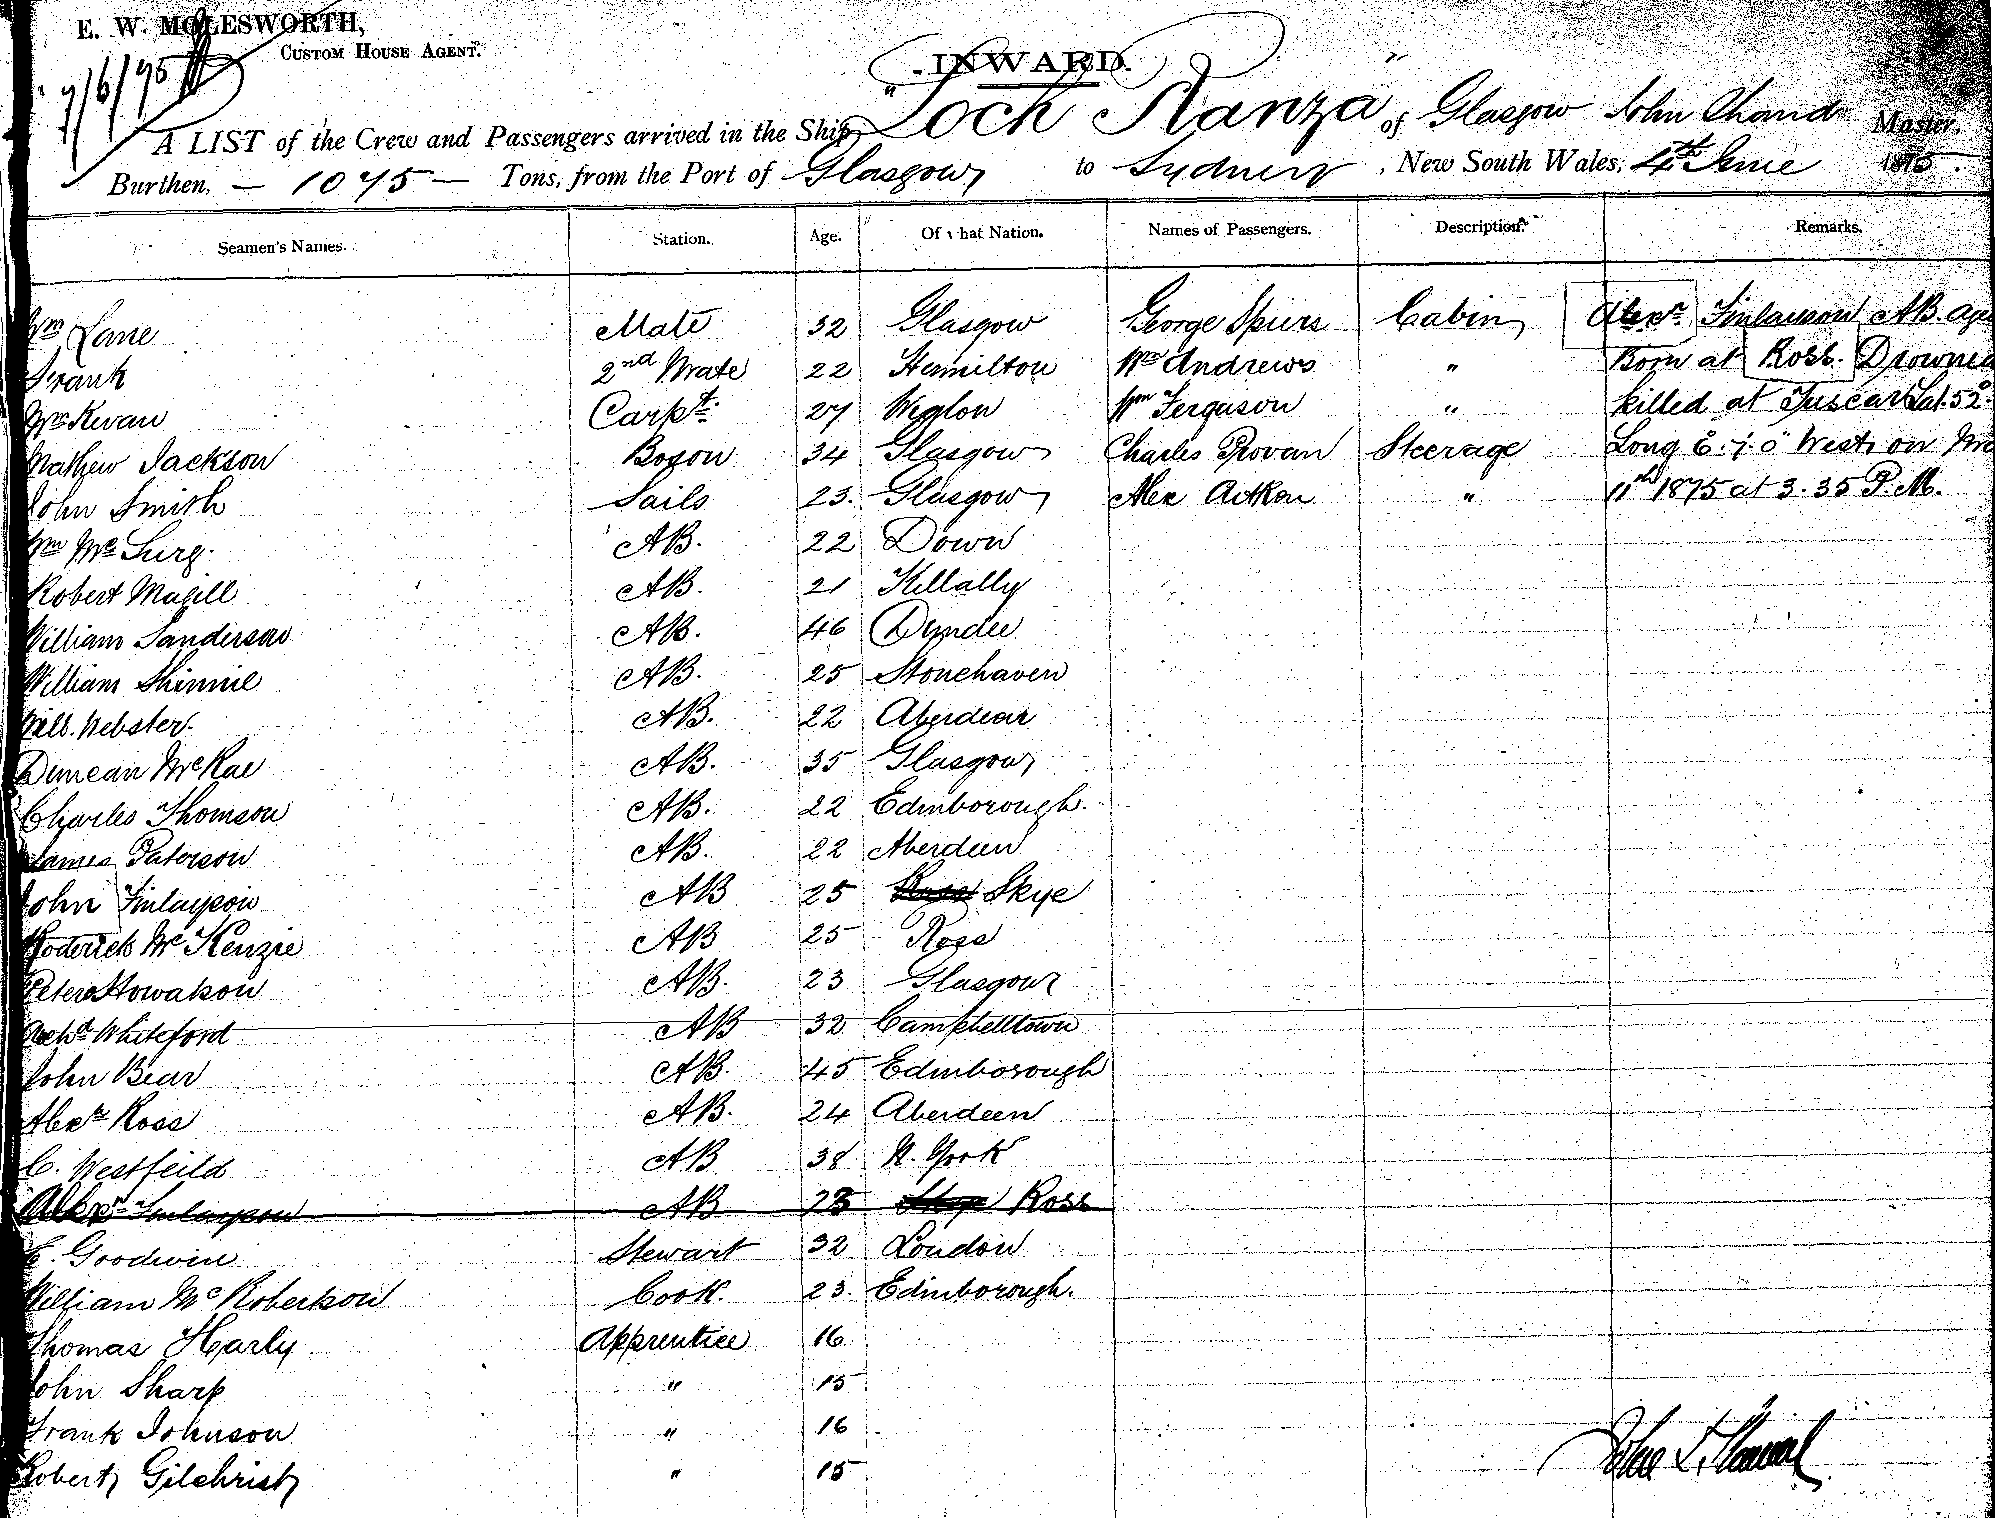 E. W. MOLESWORTH,
CUSTOM HOUSE AGENT.
7/6/75
INWARD.
A LIST of the Crew and Passengers arrived in the Ship "Loch Nanza" of Glasgow John Master,
Burthen, — 1075 — Tons, from the Port of Glasgow to Sydney, New South Wales, 4th June 1875.
Seamen's Names. Station. Age. Of what Nation. Names of Passengers. Description. Remarks.
Wm Lane Mate 32 Glasgow George Spiers Cabin Alexr Finlayson AB. age
Frank 2nd Mate 22 Hamilton Andrews " Born at Ross. Drowned
27 Carpt. Wm Ferguson " killed at Tuscar Lat. 52°
Mathew Jackson Boson 34 Glasgow Charles Provan Steerage Long 6. 7. 0 West, on
John Smith Sails 23. Glasgow Alex Aitken " 11th 1875 at 3.35 P.M.
Wm Mc Lurg. AB. 22 Down
Robert Magill AB. 21 Killally
William Sanderson AB. 46 Dundee
William Shinnie AB. 25 Stonehaven
Will. Webster. AB. 22 Aberdean
Duncan McRae AB. 35 Glasgow
Charles Thomson AB. 22 Edinborough.
James Paterson AB. 22 Aberdeen
John Finlayson AB 25 Ross Skye
Roderick Mc Kenzie AB 25 Ross
Peter Howatson AB. 23 Glasgow
Archd Whiteford AB 32 Campbelltown
John Bear AB. 45 Edinborough
Alexr Ross AB. 24 Aberdeen
C. Westfeild AB 38 N. York
Alexr Finlayson AB 23 Skye Ross
E. Goodwin Stewart 32 London
William Mc Robertson Cook. 23. Edinborough.
Thomas Harly Apprentice 16
John Sharp " 15
Frank Johnson " 16
Robert Gilchrist " 15
John